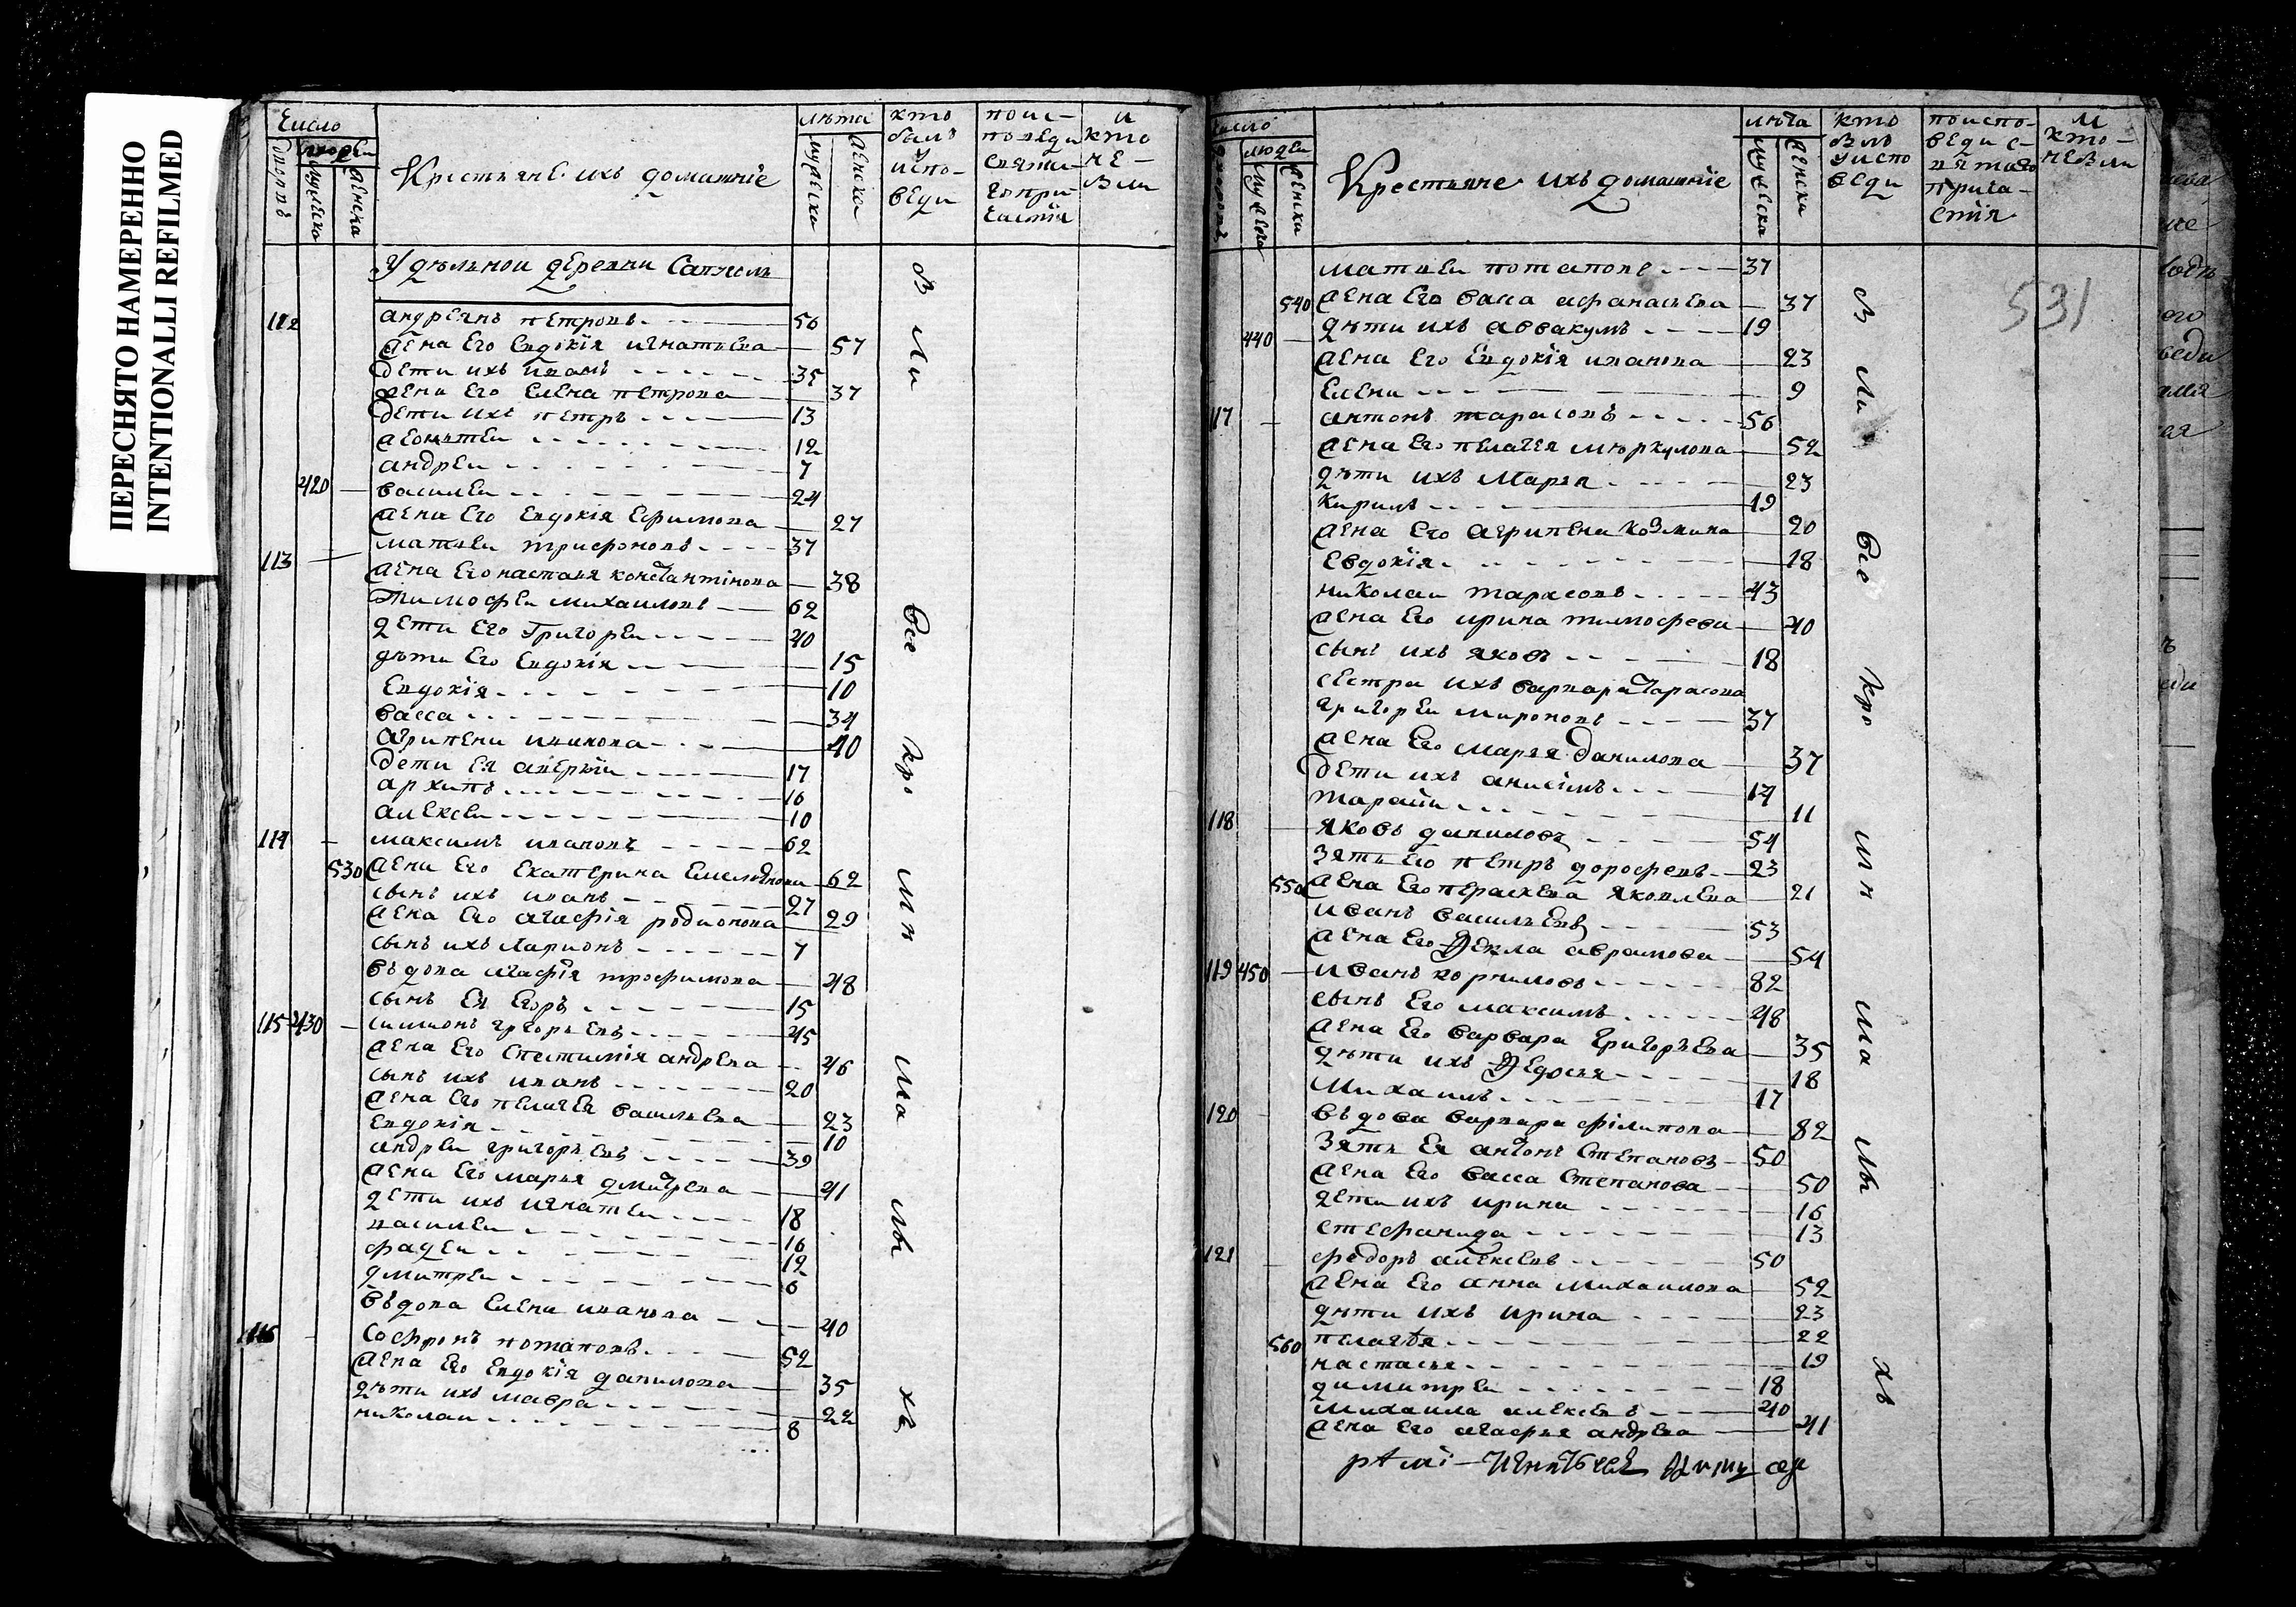 ПЕРЕСНЯТО НАМЕРЕННО
INTENTIONALLI REFILMED
Число
людеи
дворовъ
мужеска
женска
Крестьяне ихъ домашнїе
лѣта
мужеска
женска
кто
былъ
у
испо-
веди
поис-
поведи
святы-
хъ при-
частїя
и
кто
не-
были
Удѣльнои деревни
112 андреянъ петровъ 56
жена Его Евдокїя игнатьева 57
дети ихъ иванъ 35
жена Его Елена петрова 37
дети ихъ петръ 13
леонътеи 12
андреи 7
420 василеи 24
жена Его Евдокїя Ефимова 27
113 матвеи трифоновъ 37
жена Его настасья константінова 38
Тимофеи михаиловъ 62
дети Его Григореи 40
дѣти Его Евдокїя 15
Евдокїя 10
васса 34
агрипена иванова 40
дети Ея аверкїи 17
архипъ 16
алексеи 10
114 максимъ ивановъ 62
530 жена Его Екатерина Емельянова 62
сынъ ихъ иванъ 27
жена Его агафїя родионова 29
сынъ ихъ Ларионъ 7
въдова агафїя трофимова 48
сынъ Ея Егоръ 15
115 430 симионъ григорьевъ 45
жена Его андрева 46
сынъ ихъ иванъ 20
жена Его пелагея васильева 23
Евдокїя 10
андреи григорьевъ 39
жена Его марья дмитрева 41
дети ихъ игнатеи 18
василеи 16
фадеи 12
дмитреи 6
въдова Елена иванова 40
116 Софронъ потаповъ 52
жена Его Евдокїя данилова 35
дѣти ихъ мавра 22
николаи 8
Б
ы
ли
все
кро
мѣ
ма
лы
хъ
число
дворовъ
людеи
мужеска
женска
Крестьяне ихъ домашнїе
лѣта
мужеска
женска
кто
былъ
у испо
веди
поиспо-
веди с-
вятаго
прича-
стїя
и
кто-
небыли
531
матвеи потапове 37
540 жена Его васа афанасьева 37
440 дѣти ихъ аввакумъ 19
жена Его Евдокїя иванова 23
Елена 9
117 антонъ тарасовъ 56
жена Его пелагея мѣркулова 52
дѣти ихъ Марья 23
кирилъ 19
жена Его агрипена козмина 20
Евдокїя 18
николаи тарасовъ 43
жена Его ирина тимофеева 40
сынъ ихъ яковъ 18
сестра ихъ варвара Тарасова
григореи мироновъ 37
жена Его марья данилова 37
дети ихъ анисімъ 14
11
118 яковъ даниловъ 54
зять Его петръ дорофеевъ 23
550 жена Его параскева яковлева 21
иванъ васильевъ 53
жена Его Фекла аврамова 54
119 450 иванъ корниловъ 82
сынъ Его максимъ 48
жена Его варвара Григорьева 35
дѣти ихъ Федосья 18
Михаилъ 17
120 въдова варвара філипова 82
зять Ея антонъ Степановъ 50
жена Его васса Степанова 50
дети ихъ ирина 16
стефанида 13
121 федоръ алексевъ 50
жена Его анна Михаилова 52
дѣти ихъ ирина 23
560 пелагея 22
настасья 19
димитреи 18
михаила алексеевъ 40
жена Его агафья андрева 41
Б
ы
ли
все
кро
мѣ
ма
лы
хъ